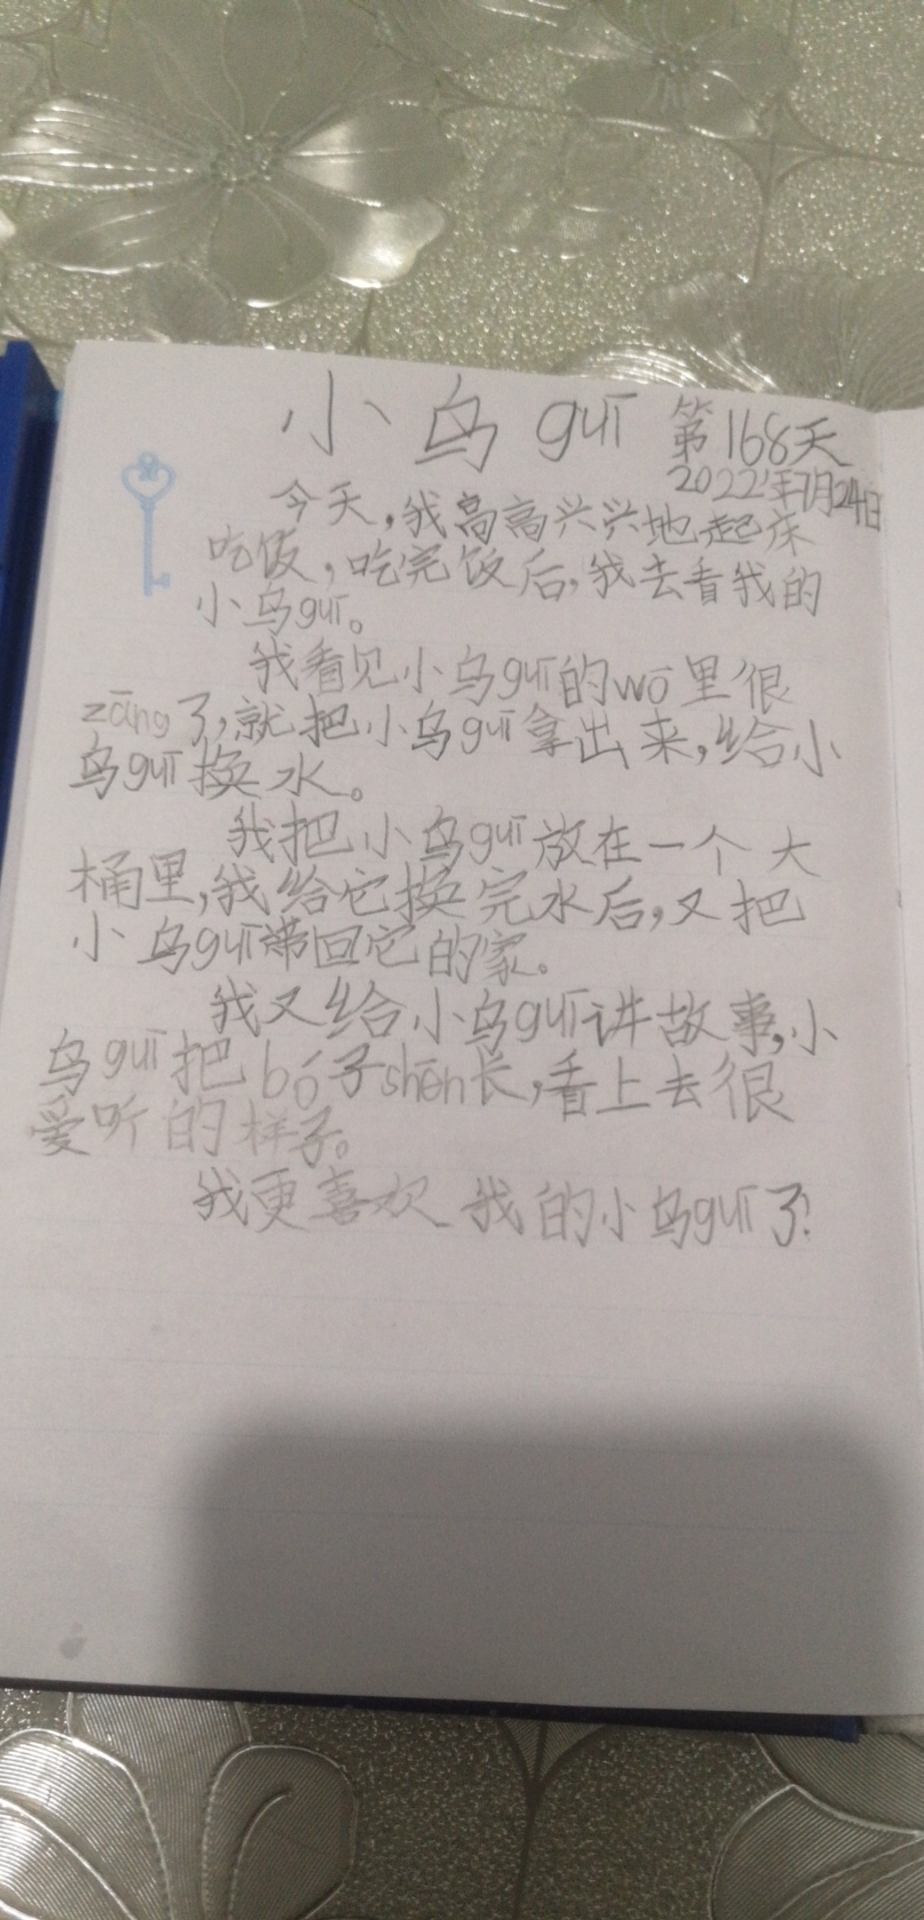 小乌guī 第168天
2022年7月24日
今天,我高高兴兴地起床
吃饭,吃完饭后,我去看我的
小乌guī。
我看见小乌guī的wō里很
zāng了,就把小乌guī拿出来,给小
乌guī换水。
我把小乌guī放在一个大
桶里,我给它换完水后,又把
小乌guī带回它的家。
我又给小乌guī讲故事,小
乌guī把bó子shēn长,看上去很
爱听的样子。
我更喜欢我的小乌guī了!